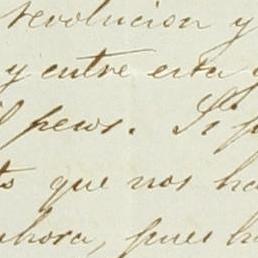 revolucion y
y entre esta
pesos. Si
que nos ha
ahora, pues